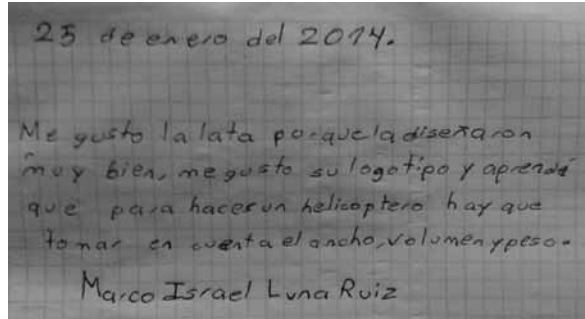 25 de enero del 2014.
Me gusto la lata porque la diseñaron
muy bien, me gusto su logotipo y aprendí
que para hacer un helicoptero hay que
tomar en cuenta el ancho, volumen y peso.
Marco Israel Luna Ruiz